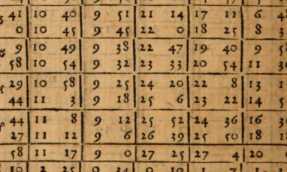 41 10 40 9 51 21 14 17 11 6
0 10 45 9 45 22 0 18 25 8
9 10 49 9 38 22 47 19 40 9
58 10 54 9 32 23 33 20 54 11
29 10 58 9 25 24 20 22 8 13
44 11 3 9 18 25 6 23 22 14
44 11 8 9 12 25 52 24 36 16
27 11 12 9 6 26 39 25 50 18
58 11 17 9 0 27 25 27 4 20